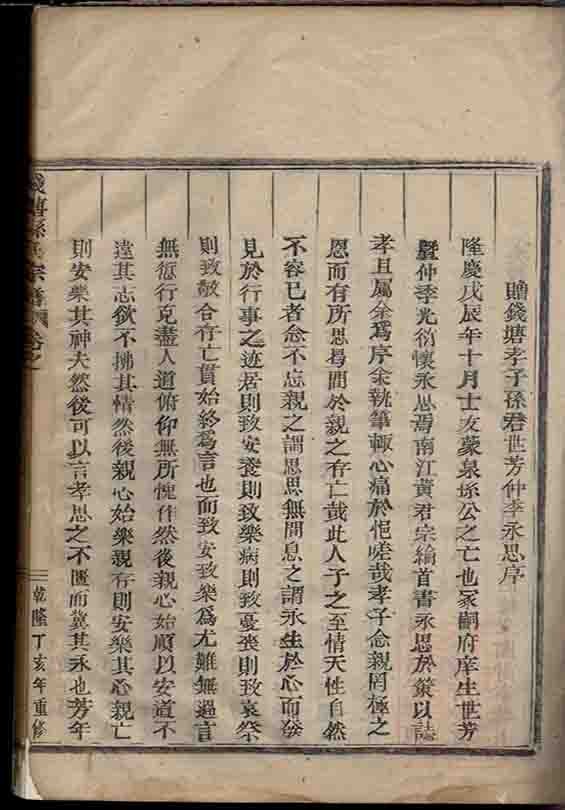 贈錢塘孝子孫君世芳仲季永思序
隆慶戊辰年十月士友蒙泉孫公之亡也冢嗣府庠生世芳
暨仲季光衍懷永思焉南江黃君宗繪首書永思於策以誌
孝且属余爲序余執筆輙心痛於悒嗟哉孝子念親罔極之
恩而有所思曷間於親之存亡哉此人子之至情天性自然
不容已者念不忘親之謂思思無間息之謂永生於心而發
見於行事之迹若則致安養則致樂病則致憂喪則致哀祭
則致敬合存亡貫始終爲言也而致安致樂爲尤難無過言
無愆行克盡人道俯仰無所愧怍然後親心始順以安道不
違其志欲不拂其情然後親心始樂親存則安樂其心親亡
則安樂其神夫然後可以言孝思之不匱而冀其永也芳年
錢塘孫氏宗譜 卷之
乾隆丁亥年重修